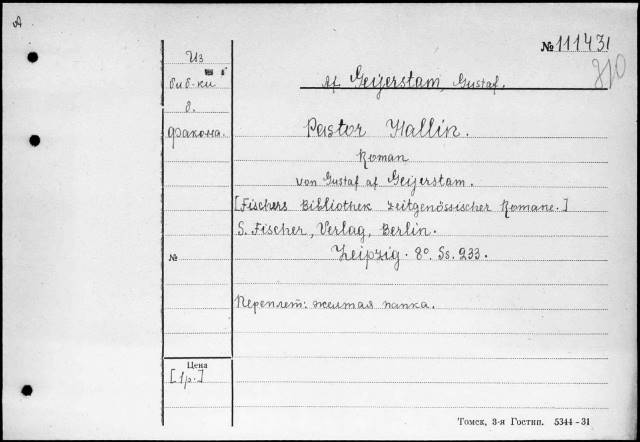 А
№111431
810
Из
биб-ки
о.
Факона.
Af Geijerstam, Gustaf.
Pastor Hallin.
Roman
von Gustaf af Geijerstam.
[Fischers Bibliothek zeitgenössischer Romane.]
S. Fischer, Verlag, Berlin.
№
Leipzig. 8°. Ss. 233.
Переплет: желтая папка.
Цена
[1р.]
Томск, 3-я Гостип. 5344-31